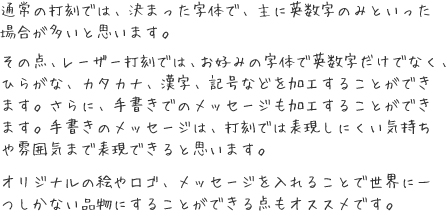 通常の打刻では、決まった字体で、主に英数字のみといった
場合が多いと思います。
その点、レーザー打刻では、お好みの字体で英数字だけでなく、
ひらがな、カタカナ、漢字、記号などを加工することができ
ます。さらに、手書きでのメッセージも加工することができ
ます。手書きのメッセージは、打刻では表現しにくい気持ち
や雰囲気まで表現できると思います。
オリジナルの絵やロゴ、メッセージを入れることで世界に一
つしかない品物にすることができる点もオススメです。